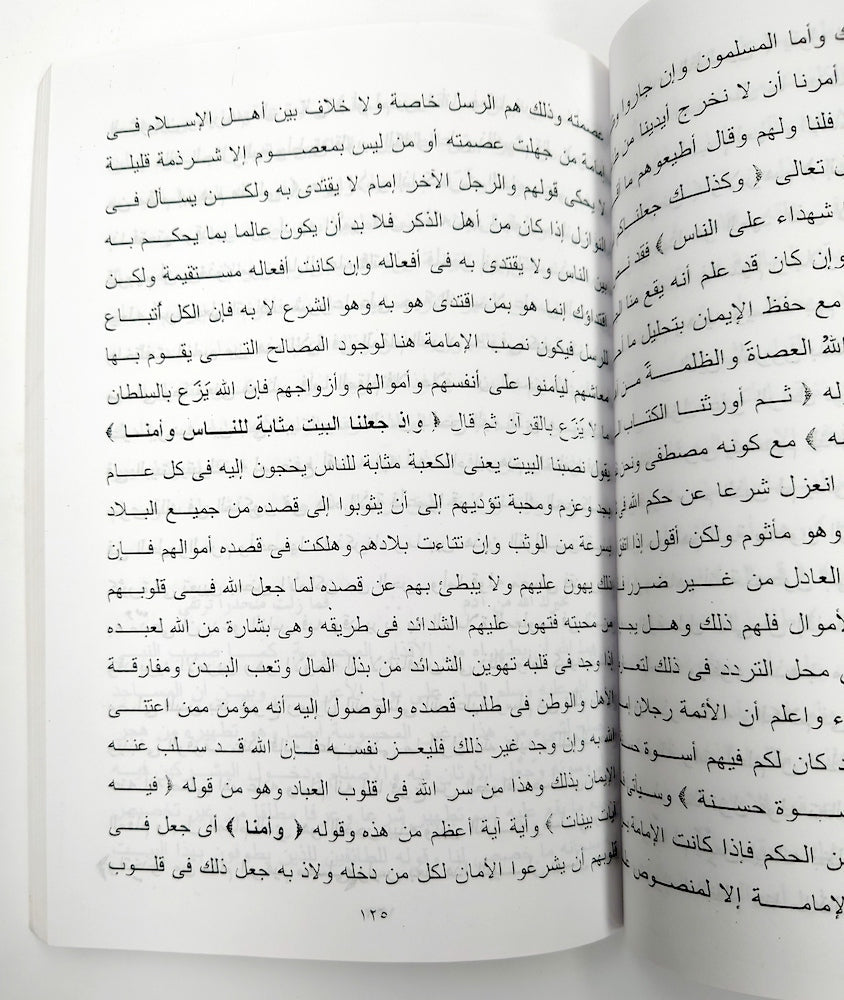 ك وأما المسلمون وإن جاروا
أمرنا أن لا نخرج أيدينا من
فلنا ولهم وقال أطيعوهم ما
تعالى ﴿ وكذلك جعلناكم
شهداء على الناس ﴾ فقد
وإن كان قد علم أنه يقع منا
مع حفظ الإيمان بتحليل ما
الله العصاة والظلمة من
له ﴿ ثم أورثنا الكتاب
ه ﴾ مع كونه مصطفى ونحن
انعزل شرعا عن حكم الله فى
وهو مأثوم ولكن أقول إذا اتفق
العادل من غير ضرر
لأموال فلهم ذلك وهل
محل التردد فى ذلك
ء واعلم أن الأئمة رجلان
د كان لكم فيهم أسوة
سوة حسنة ﴾ وسيأتى
ن الحكم فإذا كانت الإمامة
لإمامة إلا لمنصوص
عصمته وذلك هم الرسل خاصة ولا خلاف بين أهل الإسلام فى
إمامة من جهلت عصمته أو من ليس بمعصوم إلا شرذمة قليلة
لا يحكى قولهم والرجل الآخر إمام لا يقتدى به ولكن يسأل فى
النوازل إذا كان من أهل الذكر فلا بد أن يكون عالما بما يحكم به
بين الناس ولا يقتدى به فى أفعاله وإن كانت أفعاله مستقيمة ولكن
اقتداؤك إنما هو بمن اقتدى هو به وهو الشرع لا به فإن الكل أتباع
للرسل فيكون نصب الإمامة هنا لوجود المصالح التى يقوم بها
معاشهم ليأمنوا على أنفسهم وأموالهم وأزواجهم فإن الله يَزَع بالسلطان
ما لا يَزَع بالقرآن ثم قال ﴿ وإذ جعلنا البيت مثابة للناس وأمنا ﴾
يقول نصبنا البيت يعنى الكعبة مثابة للناس يحجون إليه فى كل عام
بجد وعزم ومحبة تؤديهم إلى أن يثوبوا إلى قصده من جميع البلاد
بسرعة من الوثب وإن تناءت بلادهم وهلكت فى قصده أموالهم فإن
ذلك يهون عليهم ولا يبطئ بهم عن قصده لما جعل الله فى قلوبهم
من محبته فتهون عليهم الشدائد فى طريقه وهى بشارة من الله لعبده
إذا وجد فى قلبه تهوين الشدائد من بذل المال وتعب البدن ومفارقة
الأهل والوطن فى طلب قصده والوصول إليه أنه مؤمن ممن اعتنى
الله به وإن وجد غير ذلك فليعز نفسه فإن الله قد سلب عنه
الإيمان بذلك وهذا من سر الله فى قلوب العباد وهو من قوله ﴿ فيه
آيات بينات ﴾ وأية آية أعظم من هذه وقوله ﴿ وأمنا ﴾ أى جعل فى
قلوبهم أن يشرعوا الأمان لكل من دخله ولاذ به جعل ذلك فى قلوب
١٢٥